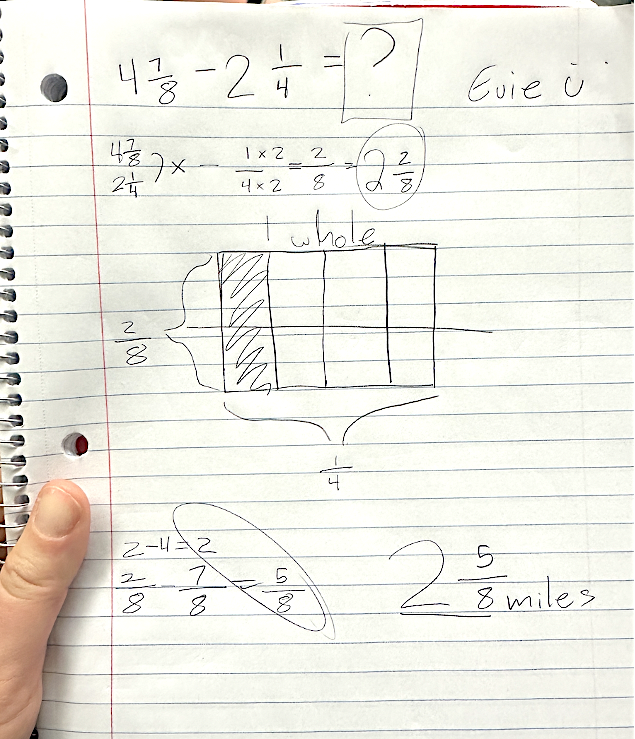 4 7/8 - 2 1/4 = ?
Evie
4 7/8
2 1/4 ) x - 1 x 2 / 4 x 2 = 2/8 = 2 2/8
1 whole
2/8
1/4
2-4=2
2/8 - 7/8 = 5/8
2 5/8 miles